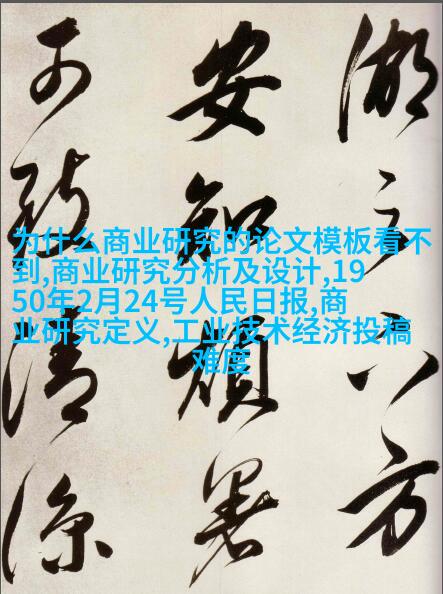 为什么商业研究的论文模板看不
到,商业研究分析及设计,19
50年2月24号人民日报,商
业研究定义,工业技术经济投稿
难度
湖八方
安知烦暑
可清凉